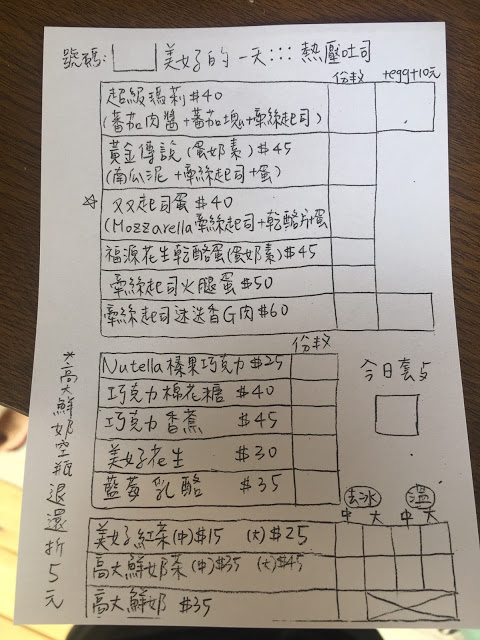 號碼: 美好的一天::: 熱壓吐司
份數 +egg+10元
超級瑪莉$40
(蕃茄肉醬+蕃茄塊+牽絲起司)
黃金傳說(蛋奶素)$45
(南瓜泥+牽絲起司+蛋)
☆ 双起司蛋$40
(Mozzarella牽絲起司+乾酪片+蛋
福源花生乾酪蛋(蛋奶素)$45
牽絲起司火腿蛋$50
牽絲起司迷迭香G肉$60
份数
Nutella榛果巧克力$25
巧克力棉花糖 $40
巧克力香蕉 $45
美好花生 $30
藍莓乳酪 $35
今日套
*高大鮮奶空瓶退還折5元
去冰 溫
中 大 中 大
美好紅茶(中)$15 (大)$25
高大鮮奶茶(中)$35 (大)$45
高大鮮奶 $35